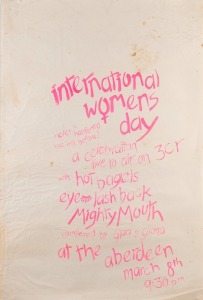 international
womens
day
a celebration
live to air on 3cr
with hot bagels
eye lash back
Mighty Mouth
at the aberdeen
march 8th
9:30pm